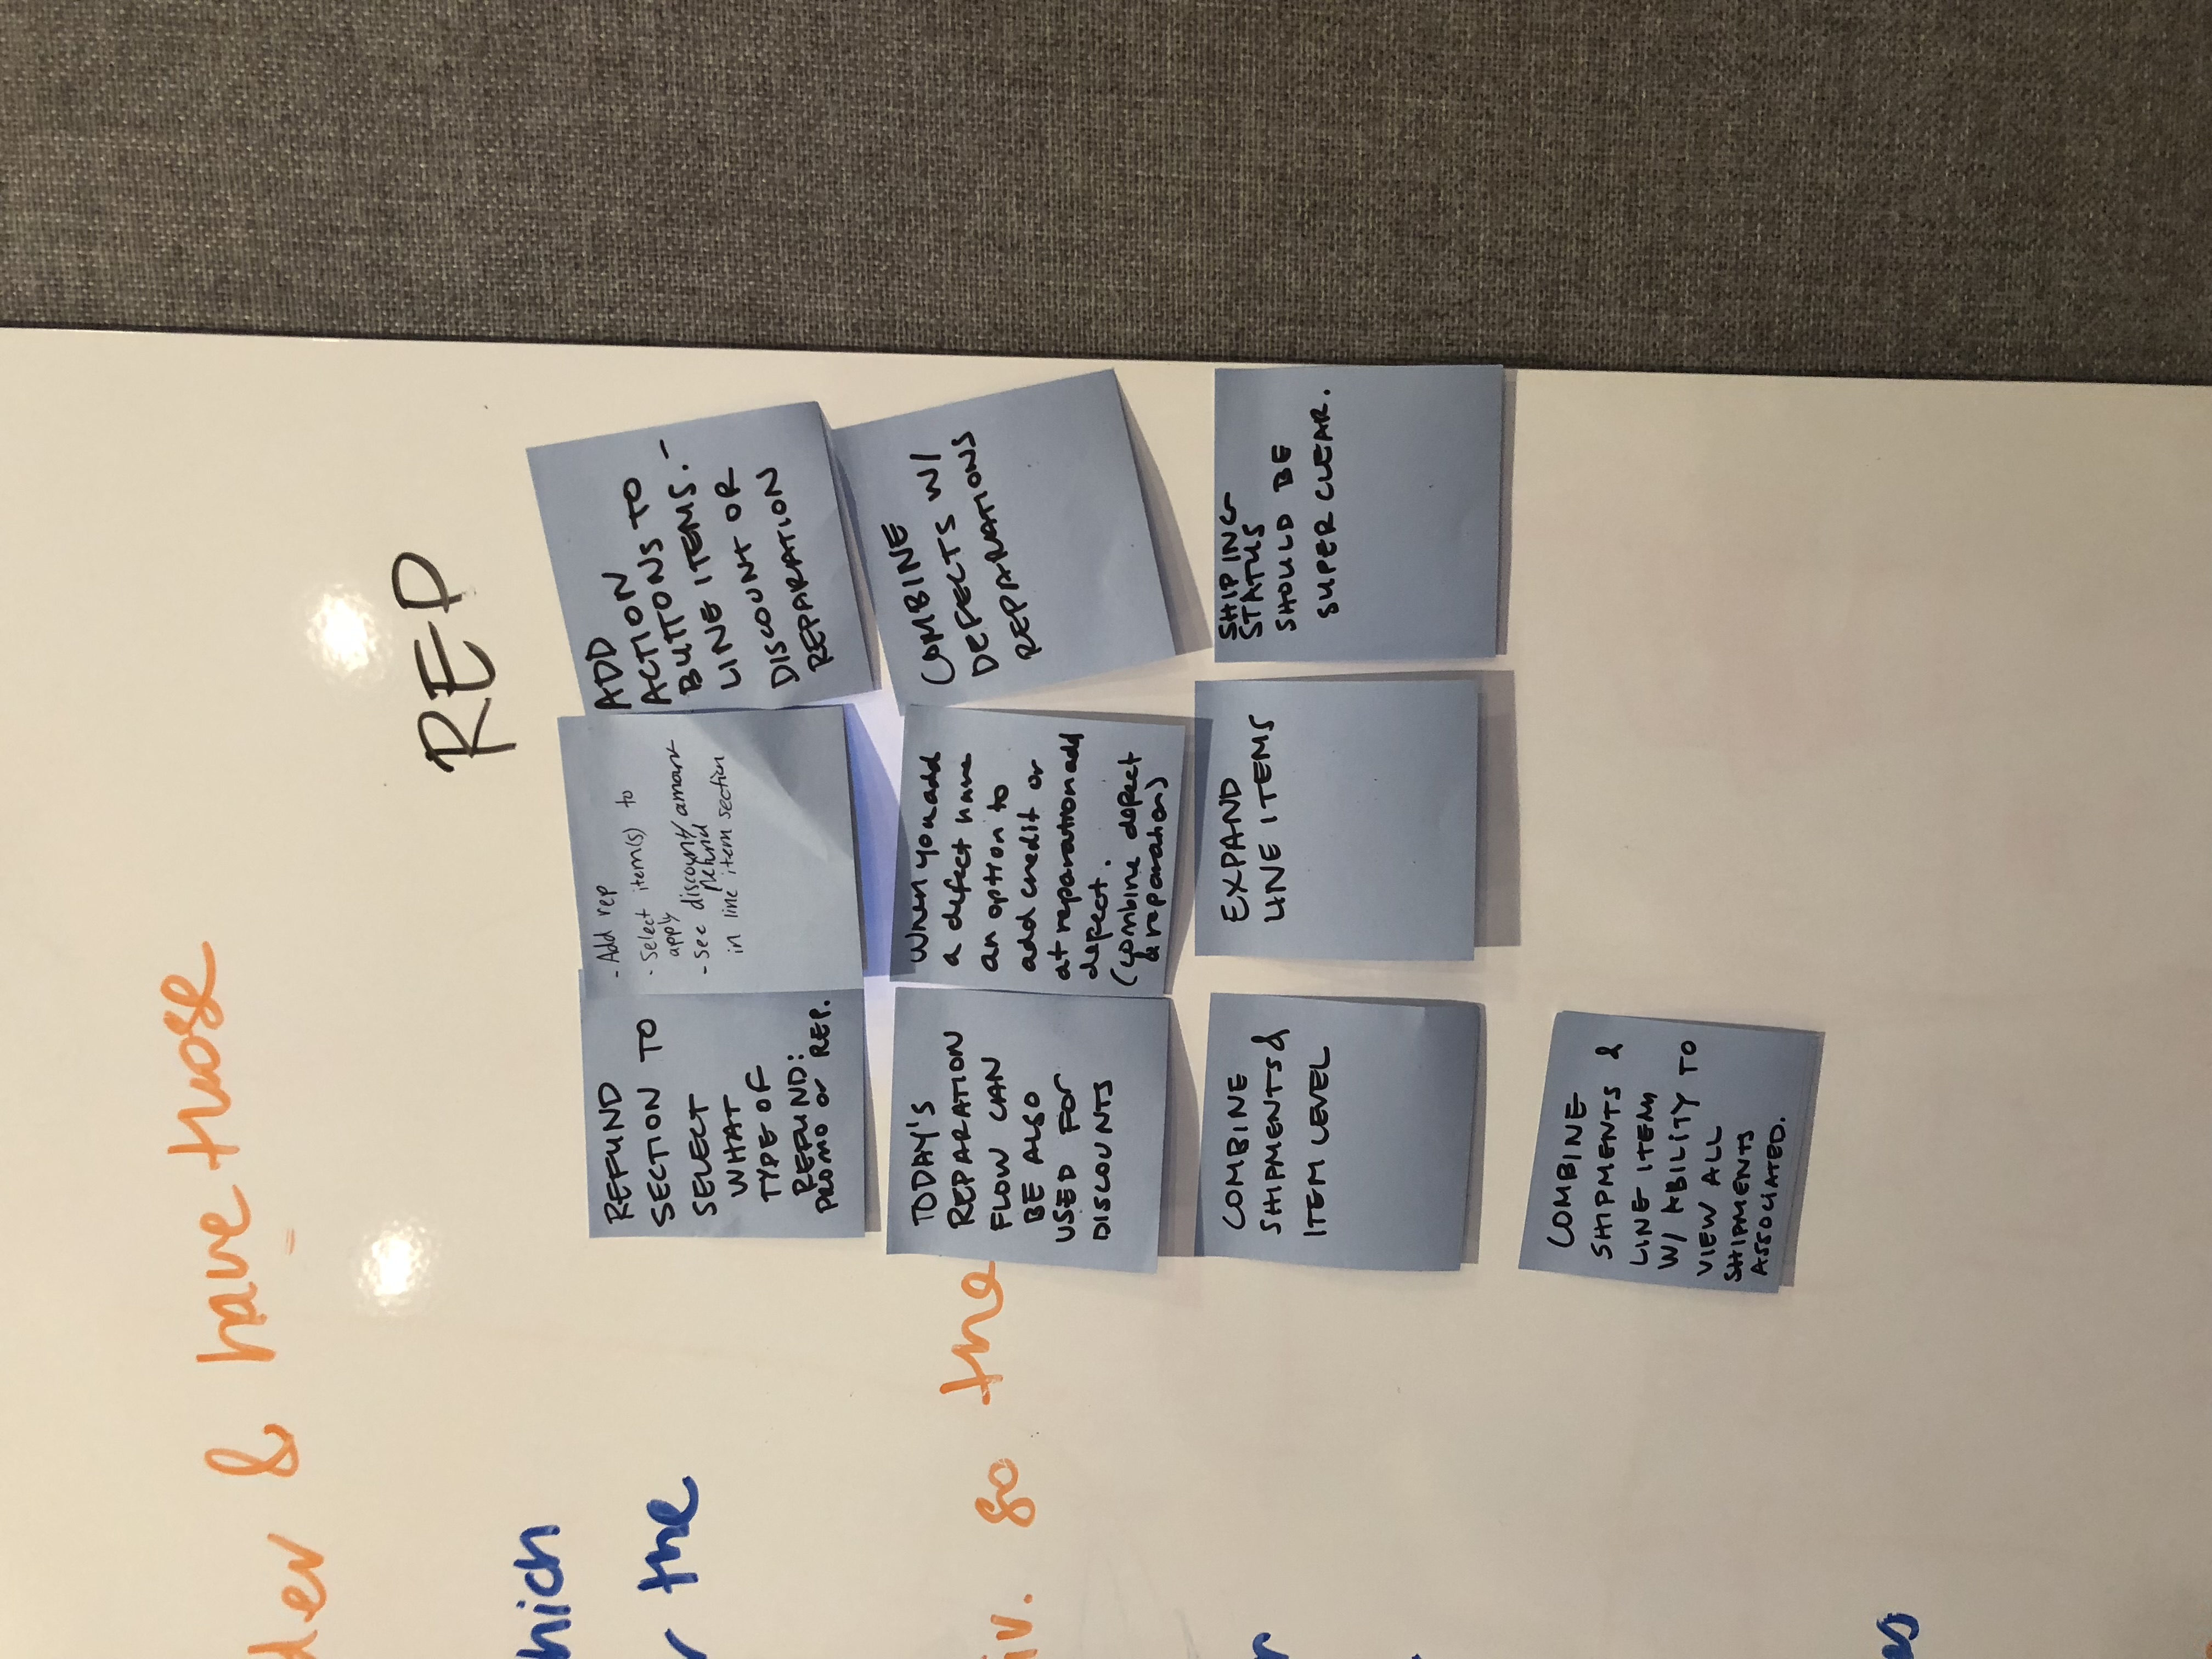 & have those
REP
the
so the
REFUND
SECTION TO
SELECT
WHAT
TYPE OF
REFUND:
PROMO or REP.
- Add rep
- Select item(s) to
apply
- See discount/ amount
Refund
in line item section
ADD
ACTION
BUTTONS TO
LINE ITEMS. -
DISCOUNT OR
REPARATION
TODAY'S
REPARATION
FLOW CAN
BE ALSO
USED FOR
DISCOUNTS
When you add
a defect have
an option to
add credit or
at reparation add
defect.
(combine defect
& reparation)
COMBINE
DEFECTS W/
REPARATIONS
COMBINE
SHIPMENTS &
ITEM LEVEL
EXPAND
LINE ITEMS
SHIPING
STATUS
SHOULD BE
SUPER CLEAR.
COMBINE
SHIPMENTS &
LINE ITEM
W/ ABILITY TO
VIEW ALL
SHIPMENTS
ASSOCIATED.